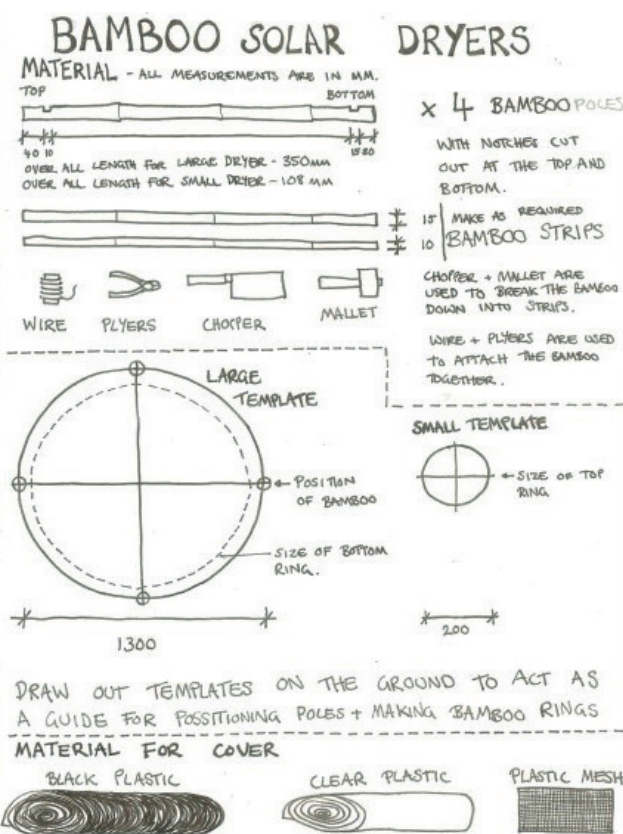 BAMBOO SOLAR DRYERS
MATERIAL - ALL MEASUREMENTS ARE IN MM.
TOP
BOTTOM
40 10
15 20
OVER ALL LENGTH FOR LARGE DRYER - 350MM
OVER ALL LENGTH FOR SMALL DRYER - 108 MM
x 4 BAMBOO POLES
WITH NOTCHES CUT
OUT AT THE TOP AND
BOTTOM.
15
10
MAKE AS REQUIRED
BAMBOO STRIPS
WIRE
PLYERS
CHOPPER
MALLET
CHOPPER + MALLET ARE
USED TO BREAK THE BAMBOO
DOWN INTO STRIPS.
WIRE + PLYERS ARE USED
TO ATTACH THE BAMBOO
TOGETHER.
LARGE
TEMPLATE
POSITION
OF BAMBOO
SIZE OF BOTTOM
RING.
1300
SMALL TEMPLATE
SIZE OF TOP
RING
200
DRAW OUT TEMPLATES ON THE GROUND TO ACT AS
A GUIDE FOR POSSITIONING POLES + MAKING BAMBOO RINGS
MATERIAL FOR COVER
BLACK PLASTIC
CLEAR PLASTIC
PLASTIC MESH